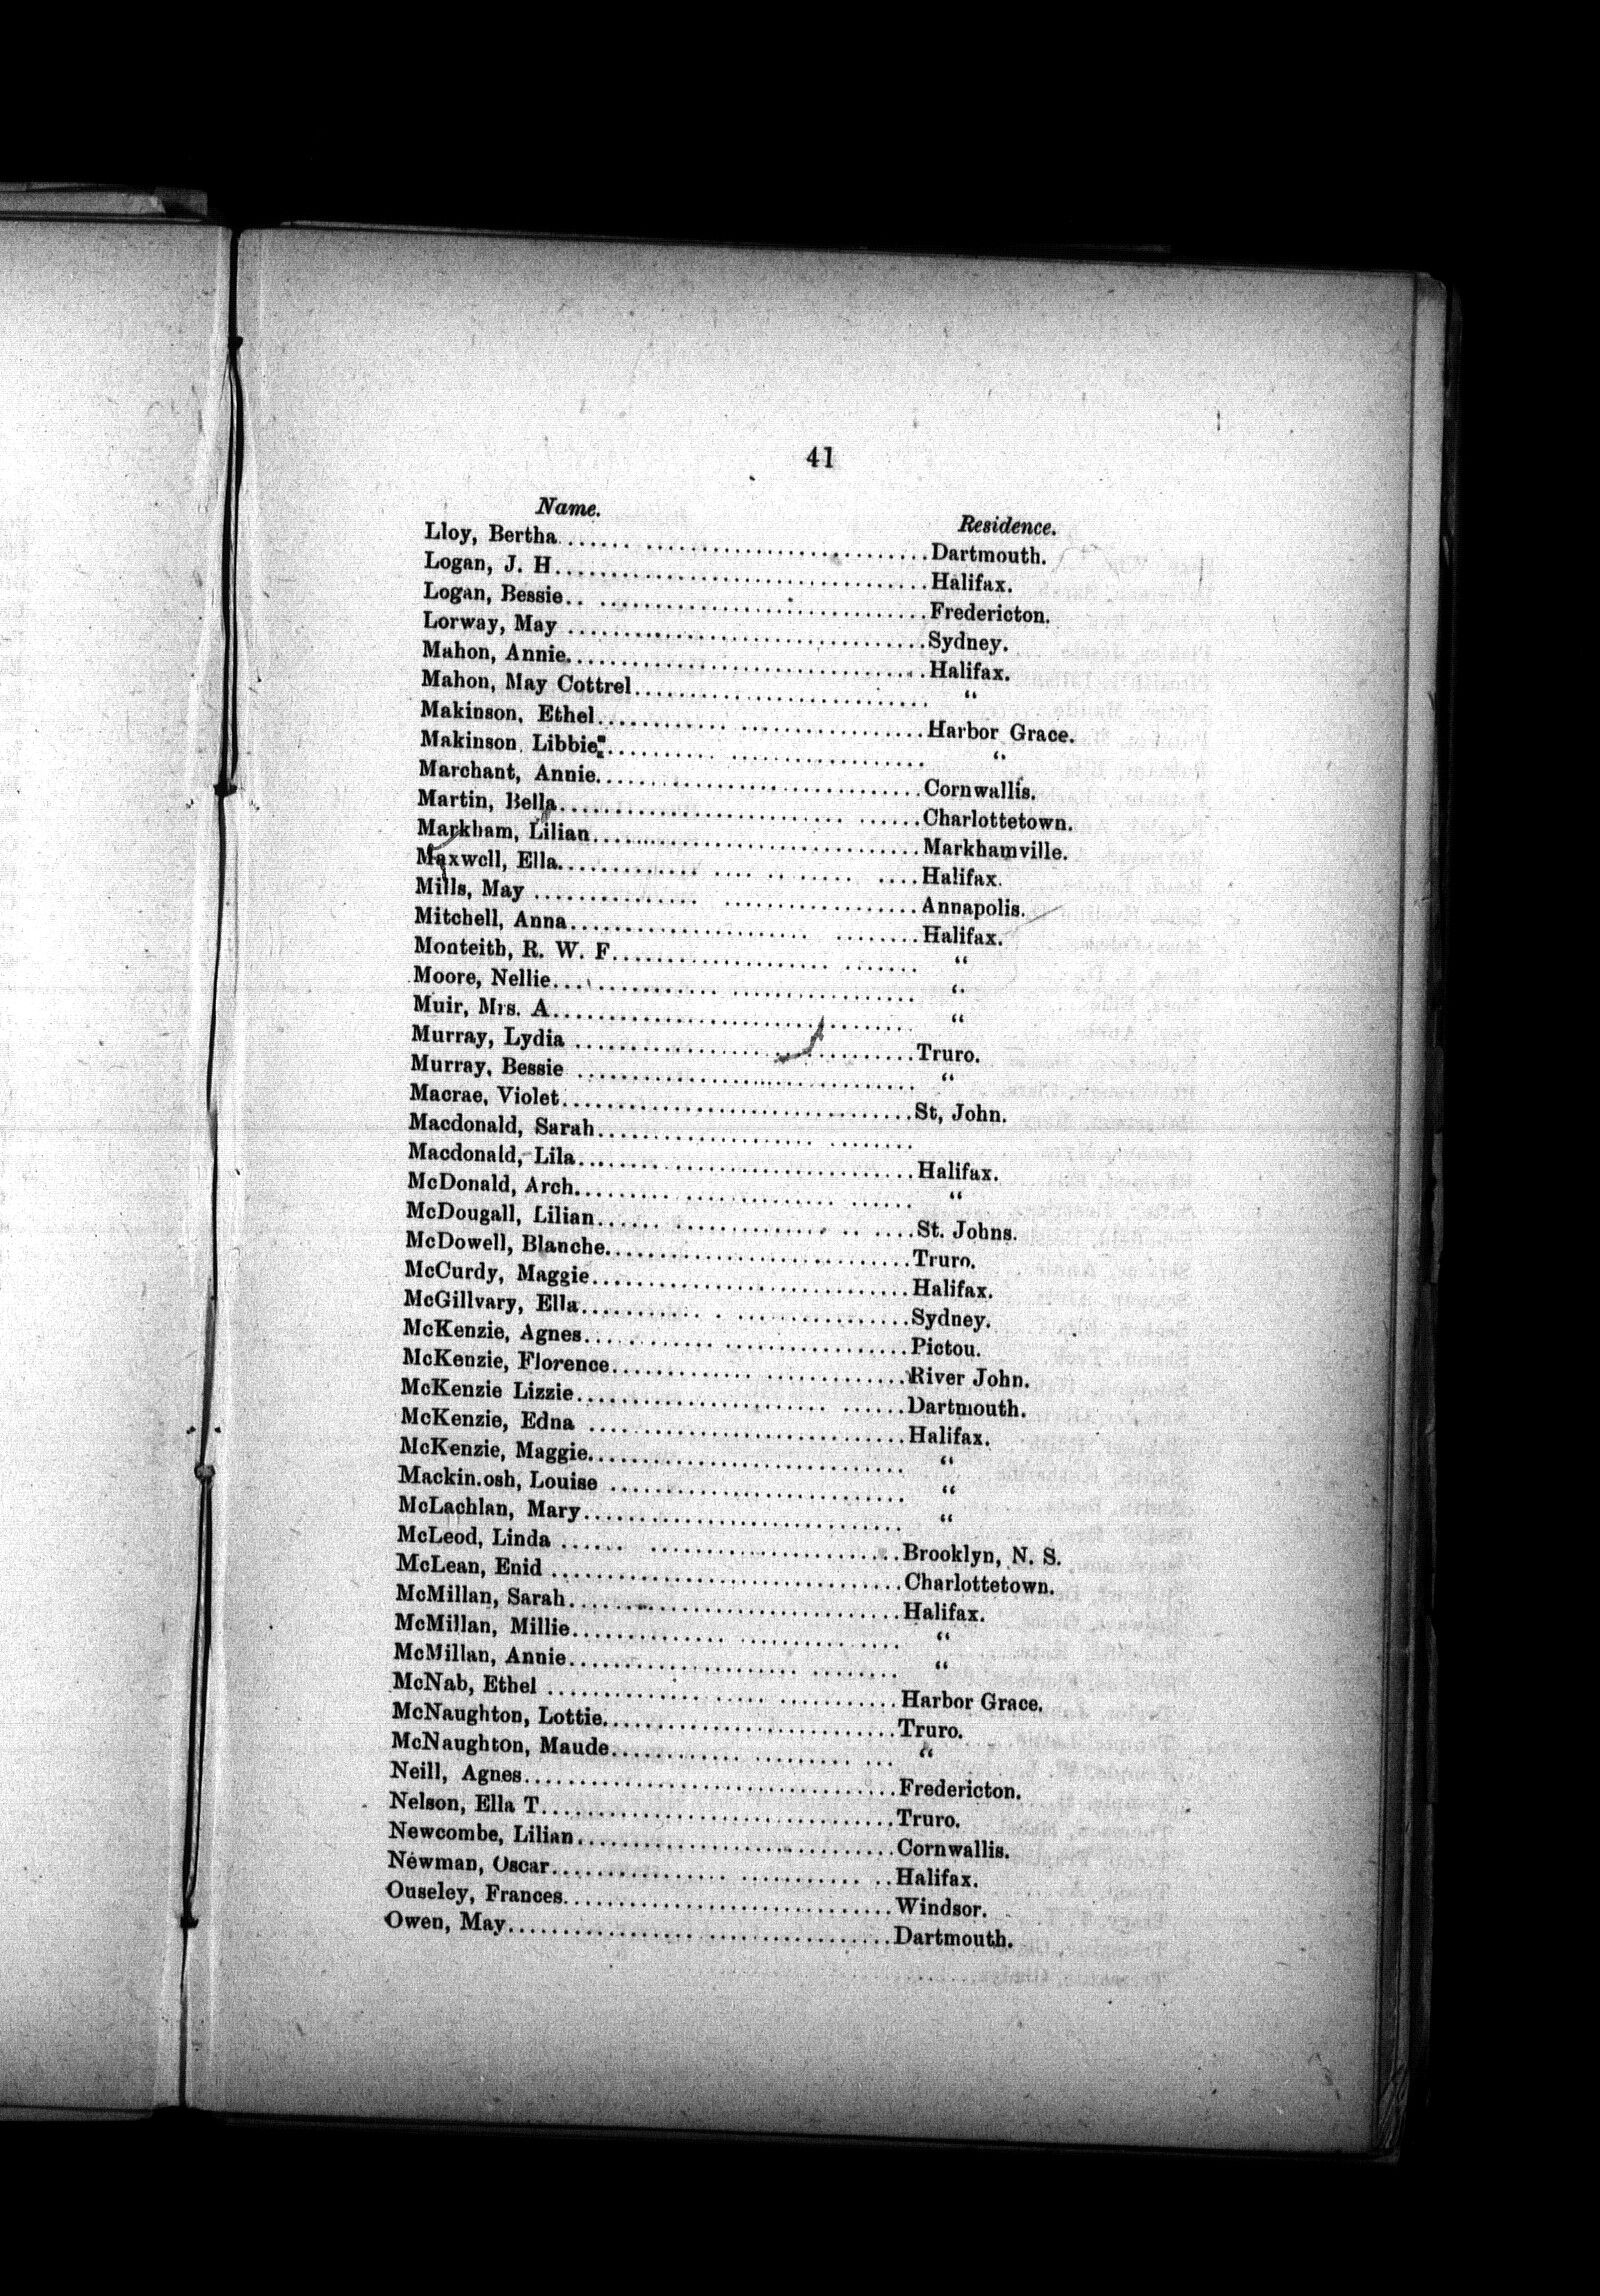 41
Name. Residence.
Lloy, Bertha Dartmouth.
Logan, J. H. Halifax.
Logan, Bessie Fredericton.
Lorway, May Sydney.
Mahon, Annie Halifax.
Mahon, May Cottrel “
Makinson, Ethel Harbor Grace.
Makinson, Libbie “
Marchant, Annie Cornwallis.
Martin, Bella Charlottetown.
Markham, Lilian Markhamville.
Maxwell, Ella Halifax.
Mills, May Annapolis.
Mitchell, Anna Halifax.
Monteith, R. W. F. “
Moore, Nellie “
Muir, Mrs. A. “
Murray, Lydia Truro.
Murray, Bessie “
Macrae, Violet St, John.
Macdonald, Sarah
Macdonald, Lila Halifax.
McDonald, Arch. “
McDougall, Lilian St. Johns.
McDowell, Blanche Truro.
McCurdy, Maggie Halifax.
McGillvary, Ella Sydney.
McKenzie, Agnes Pictou.
McKenzie, Florence River John.
McKenzie Lizzie Dartmouth.
McKenzie, Edna Halifax.
McKenzie, Maggie “
Mackin.osh, Louise “
McLachlan, Mary “
McLeod, Linda Brooklyn, N. S.
McLean, Enid Charlottetown.
McMillan, Sarah Halifax.
McMillan, Millie “
McMillan, Annie “
McNab, Ethel Harbor Grace.
McNaughton, Lottie Truro.
McNaughton, Maude “
Neill, Agnes Fredericton.
Nelson, Ella T. Truro.
Newcombe, Lilian Cornwallis.
Newman, Oscar Halifax.
Ouseley, Frances Windsor.
Owen, May Dartmouth.